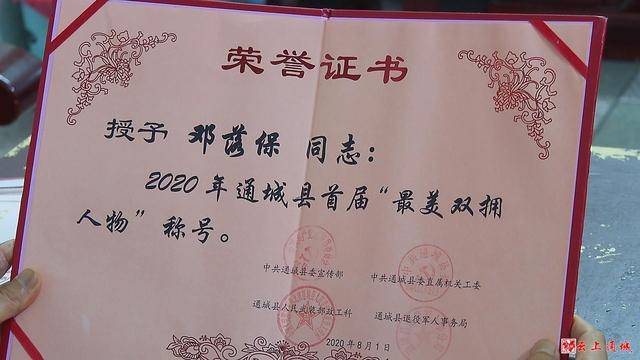 荣誉证书
授予 邓落保 同志：
2020年通城县首届“最美双拥
人物”称号。
中共通城县委宣传部 中共通城县委直属机关工委
通城县人民武装部政工科 通城县退役军人事务局
2020年8月1日
云上通城